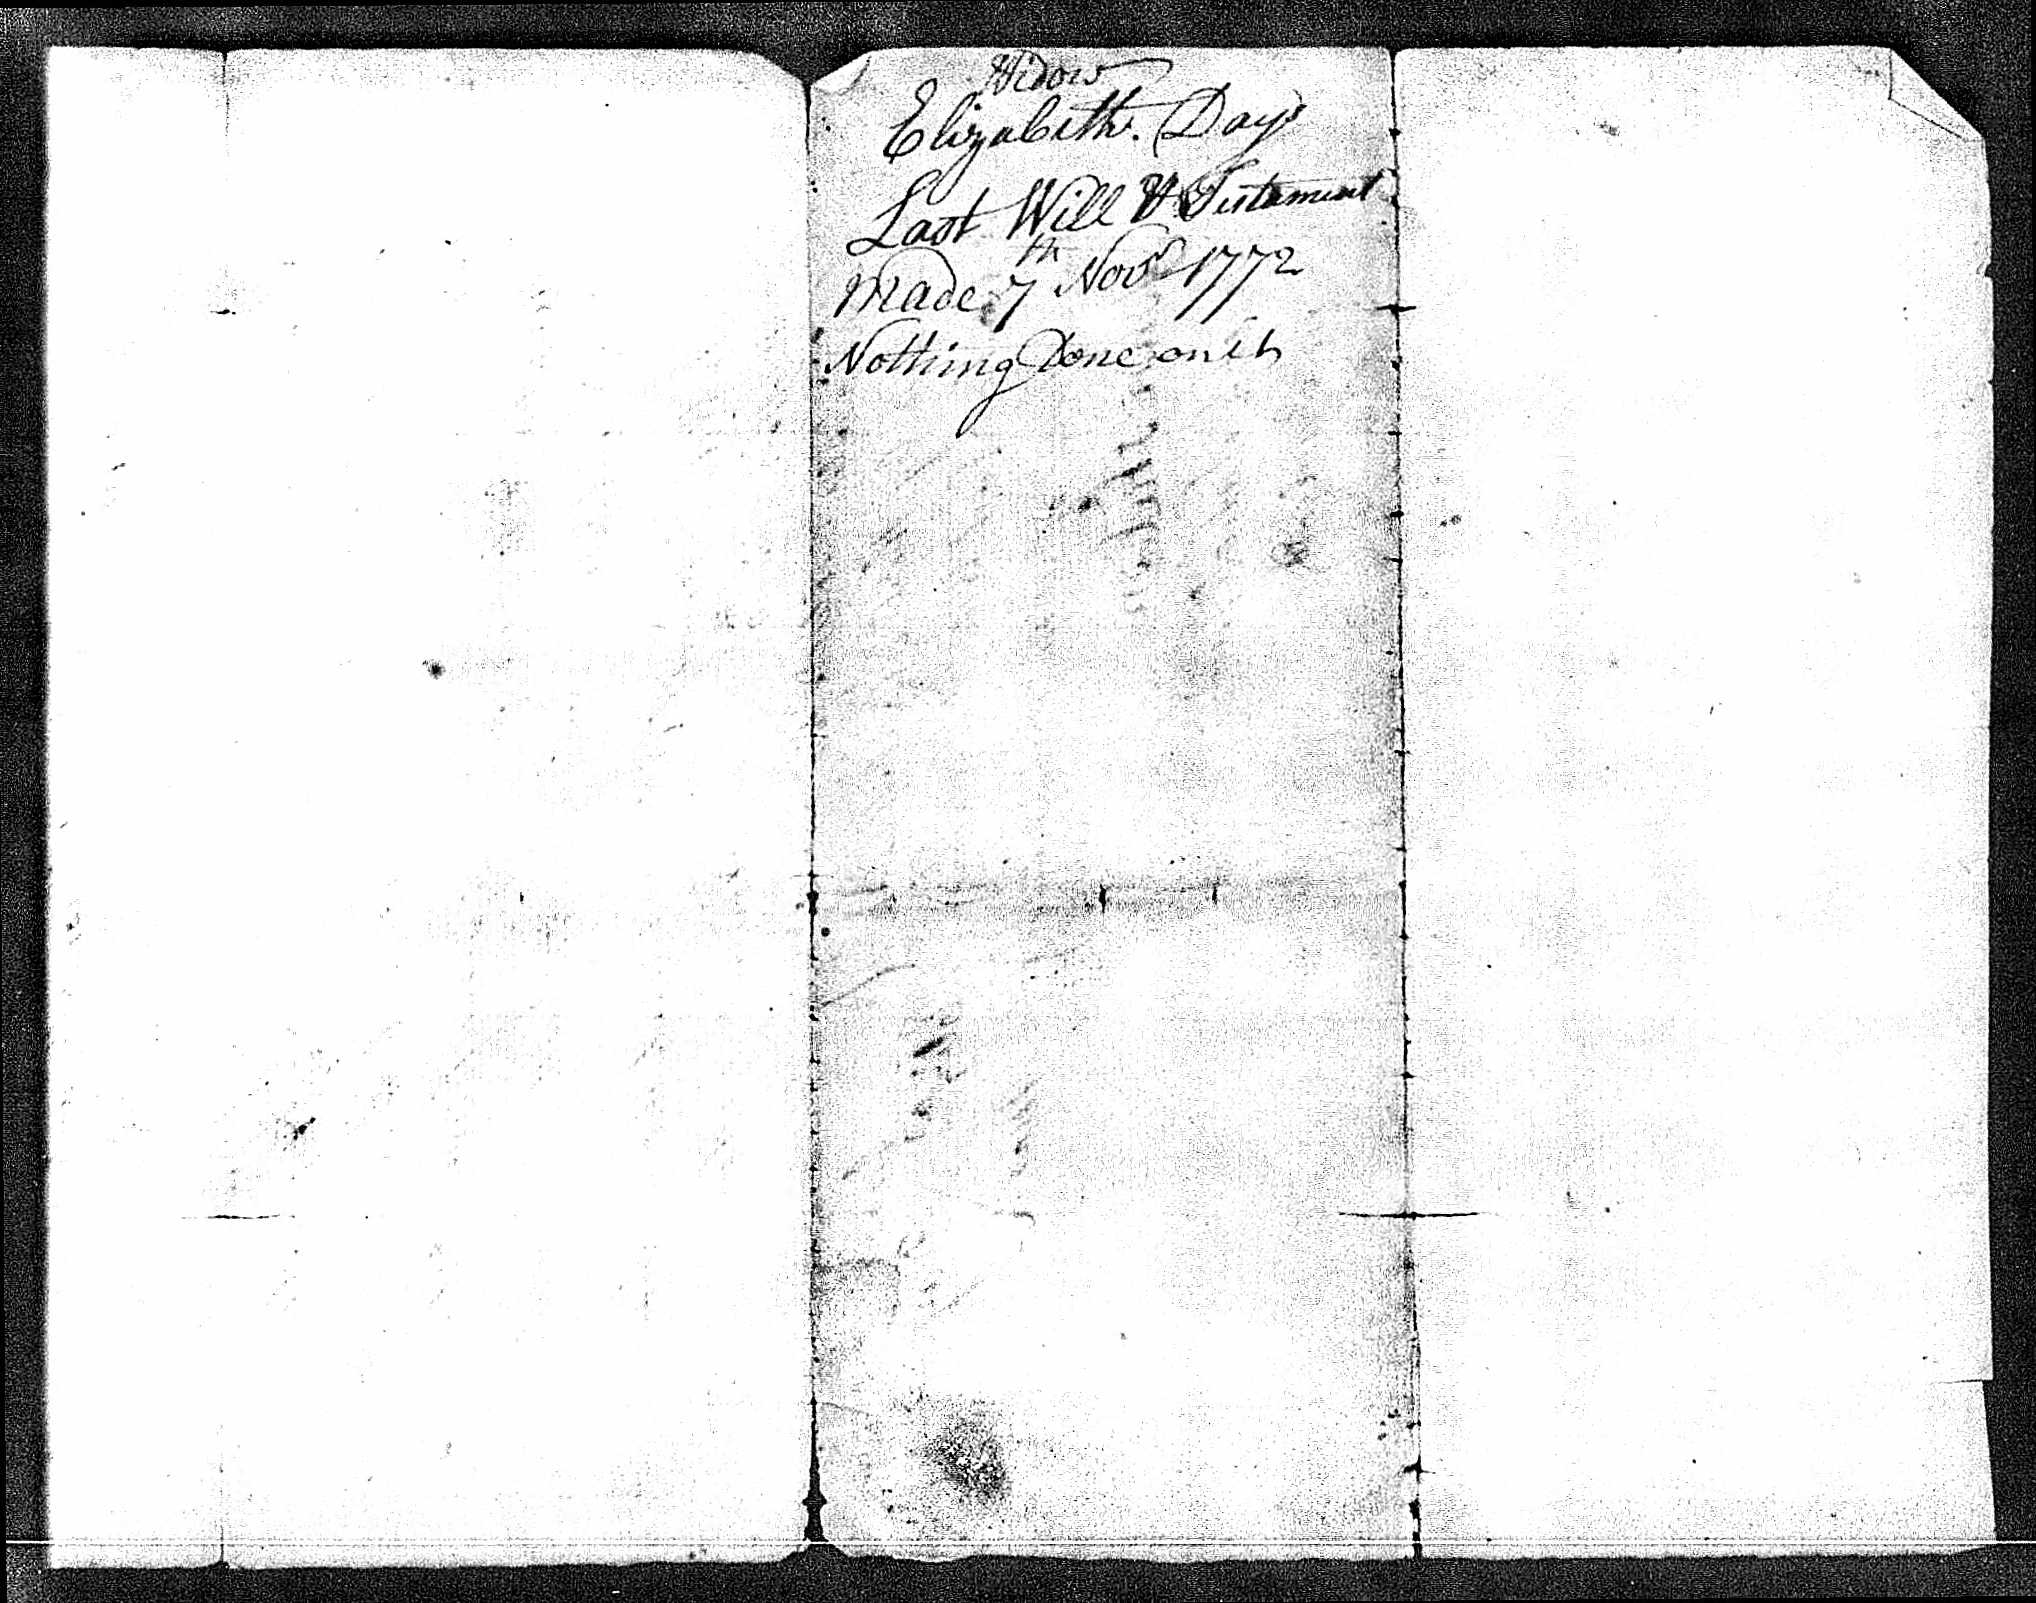 Widow
Elizabeth Days
Last Will & Testament
Made 7th Novr 1772
Nothing Done on it